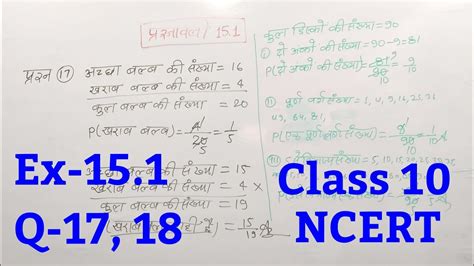 प्रश्नावली 15.1
प्रश्न 17 अच्छा बल्ब की संख्या = 16
खराब बल्ब की संख्या = 4
कुल बल्ब की संख्या = 20
P(खराब बल्ब) = 4/20 = 1/5
अच्छा बल्ब की संख्या = 15
खराब बल्ब की संख्या = 4 ×
कुल बल्ब की संख्या = 19
= 15/19
कुल डिस्कों की संख्या = 90
① दो अंकों की संख्या = 90-9 = 81
P(दो अंकों की संख्या) = 81/90 = 9/10
⑪ पूर्ण वर्ग संख्या = 1, 4, 9, 16, 25, 36
49, 64, 81,
P(एक पूर्ण वर्ग संख्या) = 9/90 = 1/10
5, 10, 15, 20, 25, 30, 35
Ex-15.1
Q-17, 18
Class 10
NCERT